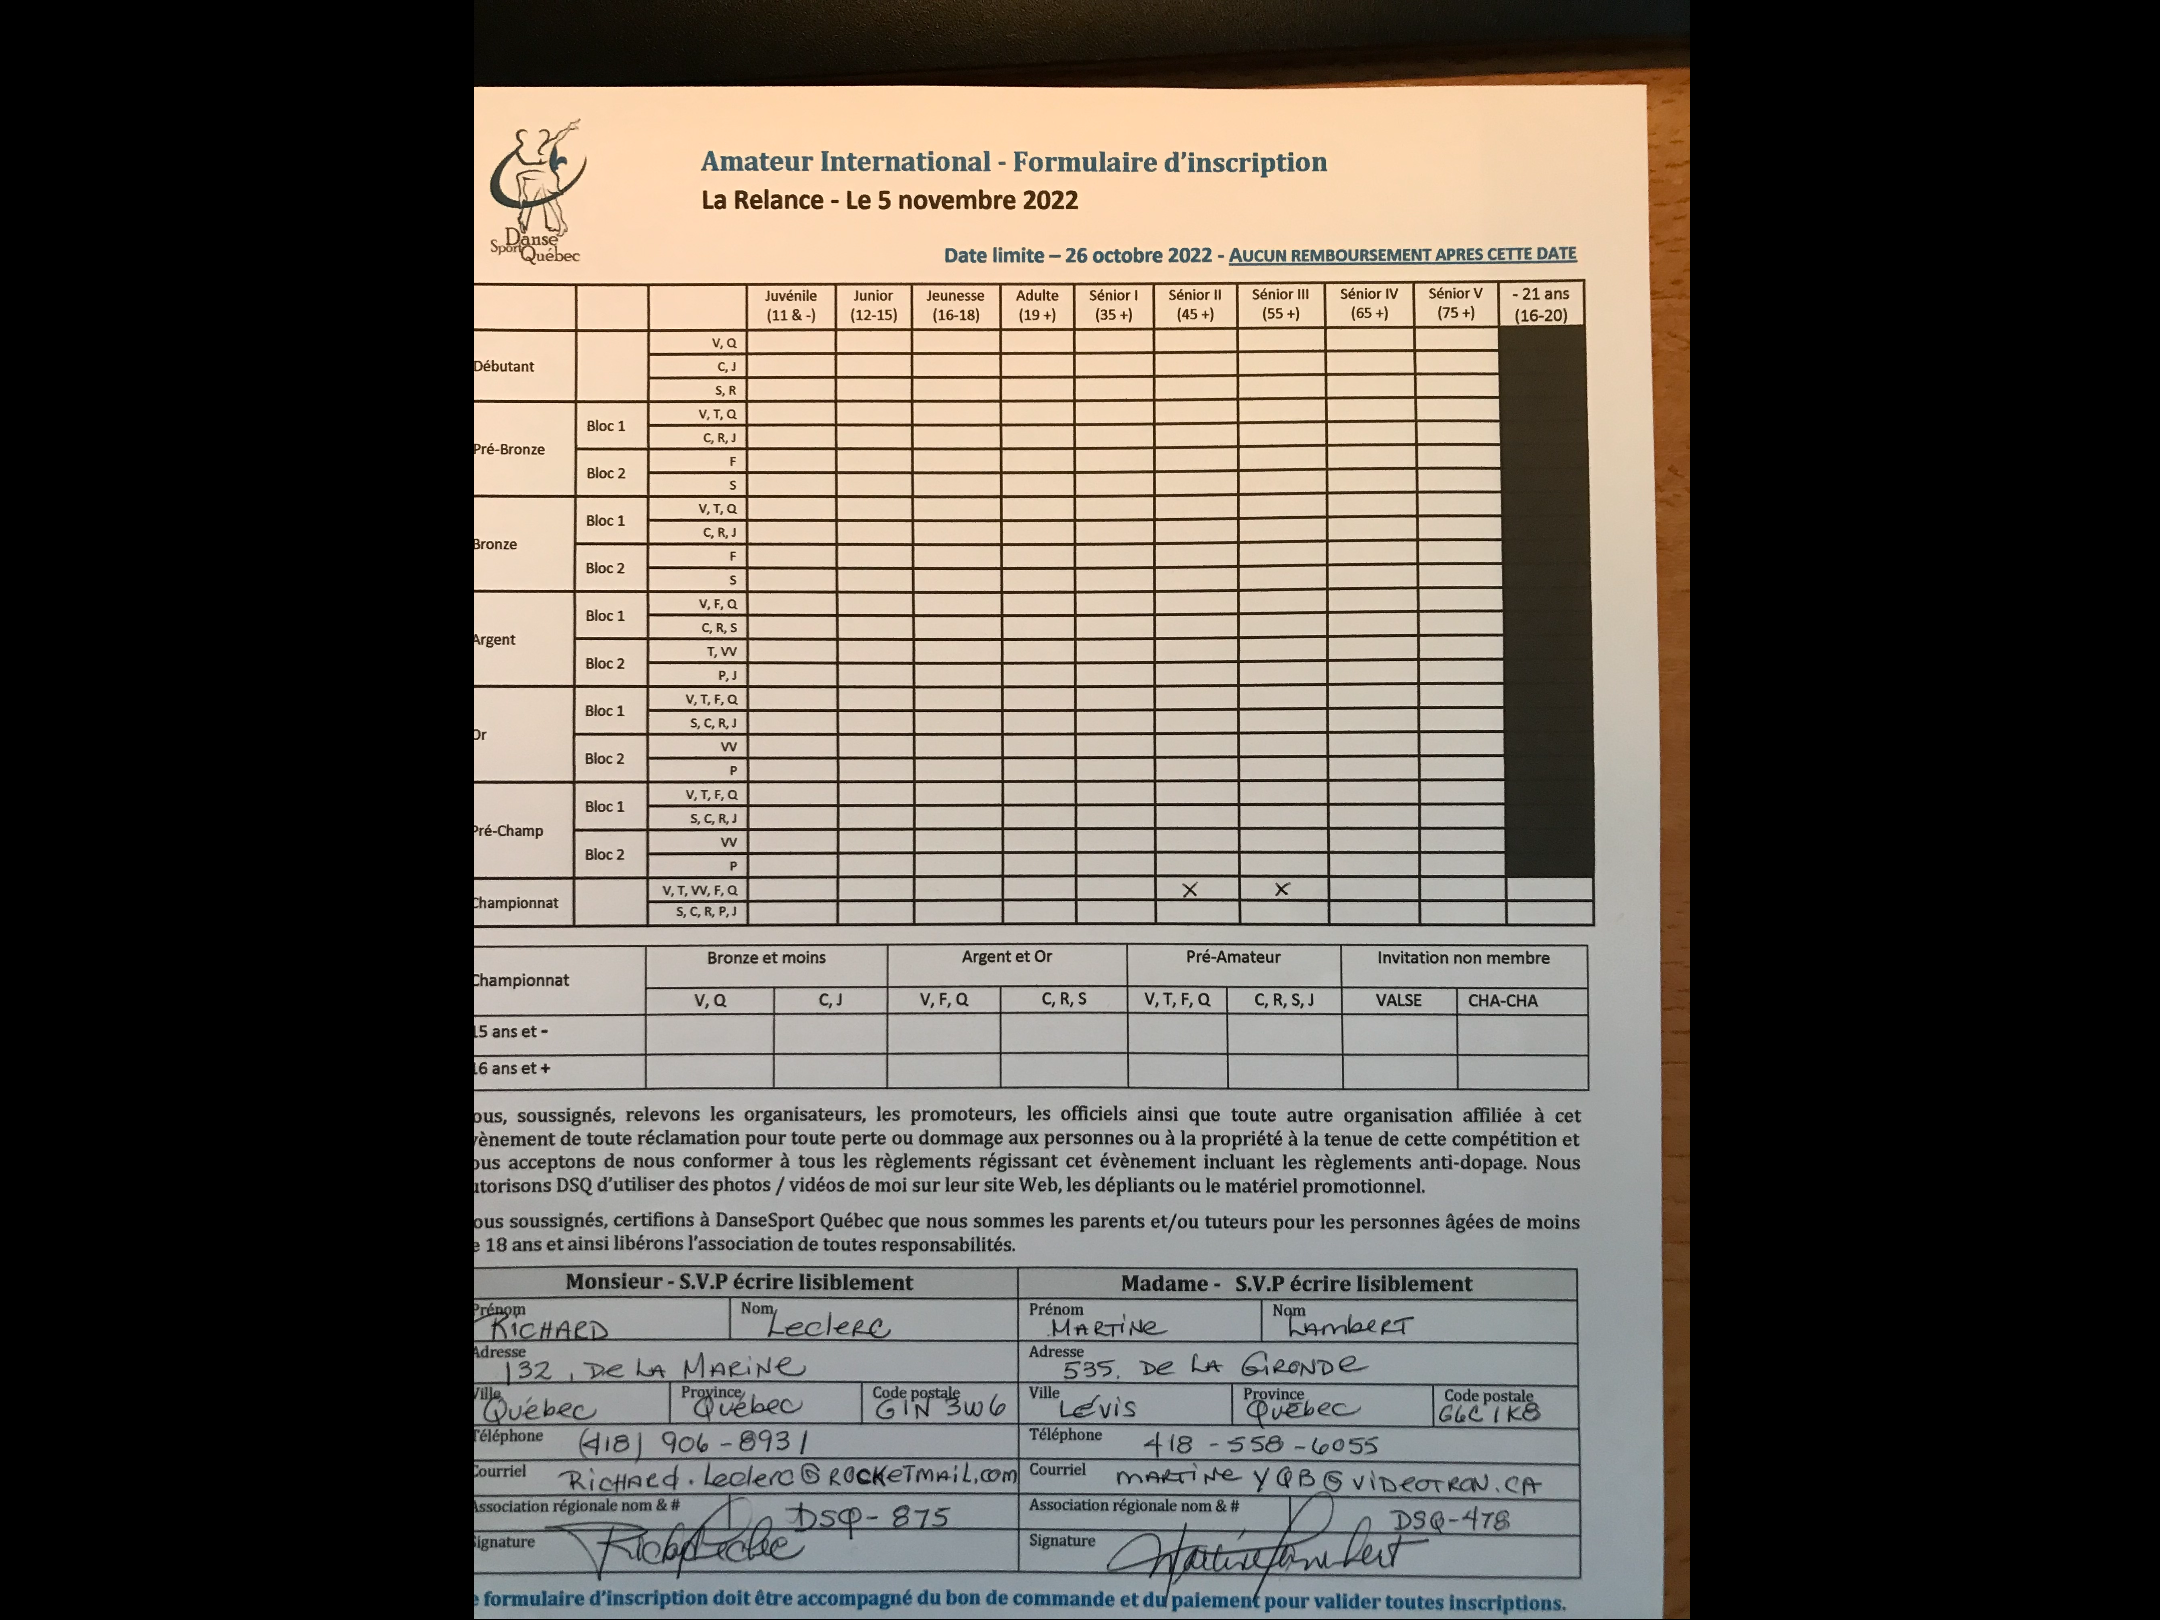 Danse
Sport Québec
Amateur International - Formulaire d'inscription
La Relance - Le 5 novembre 2022
Date limite – 26 octobre 2022 - AUCUN REMBOURSEMENT APRES CETTE DATE
Juvénile (11 & -) Junior (12-15) Jeunesse (16-18) Adulte (19 +) Sénior I (35 +) Sénior II (45 +) Sénior III (55 +) Sénior IV (65 +) Sénior V (75 +) - 21 ans (16-20)
Débutant
V, Q
C, J
S, R
Pré-Bronze
Bloc 1
V, T, Q
C, R, J
Bloc 2
F
S
Bronze
Bloc 1
V, T, Q
C, R, J
Bloc 2
F
S
Argent
Bloc 1
V, F, Q
C, R, S
Bloc 2
T, VV
P, J
Or
Bloc 1
V, T, F, Q
S, C, R, J
Bloc 2
VV
P
Pré-Champ
Bloc 1
V, T, F, Q
S, C, R, J
Bloc 2
VV
P
Championnat
V, T, VV, F, Q X X
S, C, R, P, J
Championnat
Bronze et moins Argent et Or Pré-Amateur Invitation non membre
V, Q C, J V, F, Q C, R, S V, T, F, Q C, R, S, J VALSE CHA-CHA
15 ans et -
16 ans et +
ous, soussignés, relevons les organisateurs, les promoteurs, les officiels ainsi que toute autre organisation affiliée à cet
vènement de toute réclamation pour toute perte ou dommage aux personnes ou à la propriété à la tenue de cette compétition et
ous acceptons de nous conformer à tous les règlements régissant cet évènement incluant les règlements anti-dopage. Nous
utorisons DSQ d'utiliser des photos / vidéos de moi sur leur site Web, les dépliants ou le matériel promotionnel.
ous soussignés, certifions à DanseSport Québec que nous sommes les parents et/ou tuteurs pour les personnes âgées de moins
e 18 ans et ainsi libérons l'association de toutes responsabilités.
Monsieur - S.V.P écrire lisiblement Madame - S.V.P écrire lisiblement
Prénom RICHARD Nom Leclerc Prénom MARTINE Nom LAMBERT
Adresse 132, DE LA MARINE Adresse 535, DE LA GIRONDE
Ville Québec Province Québec Code postale G1N 3W6 Ville LÉVIS Province Québec Code postale G6C 1K8
Téléphone (418) 906-8931 Téléphone 418-558-6055
Courriel RICHARD.Leclerc@ROCKETMAIL.com Courriel MARTINEYQB@VIDEOTRON.CA
Association régionale nom & # DSQ-875 Association régionale nom & # DSQ-478
Signature Signature Martine Lambert
e formulaire d'inscription doit être accompagné du bon de commande et du paiement pour valider toutes inscriptions.